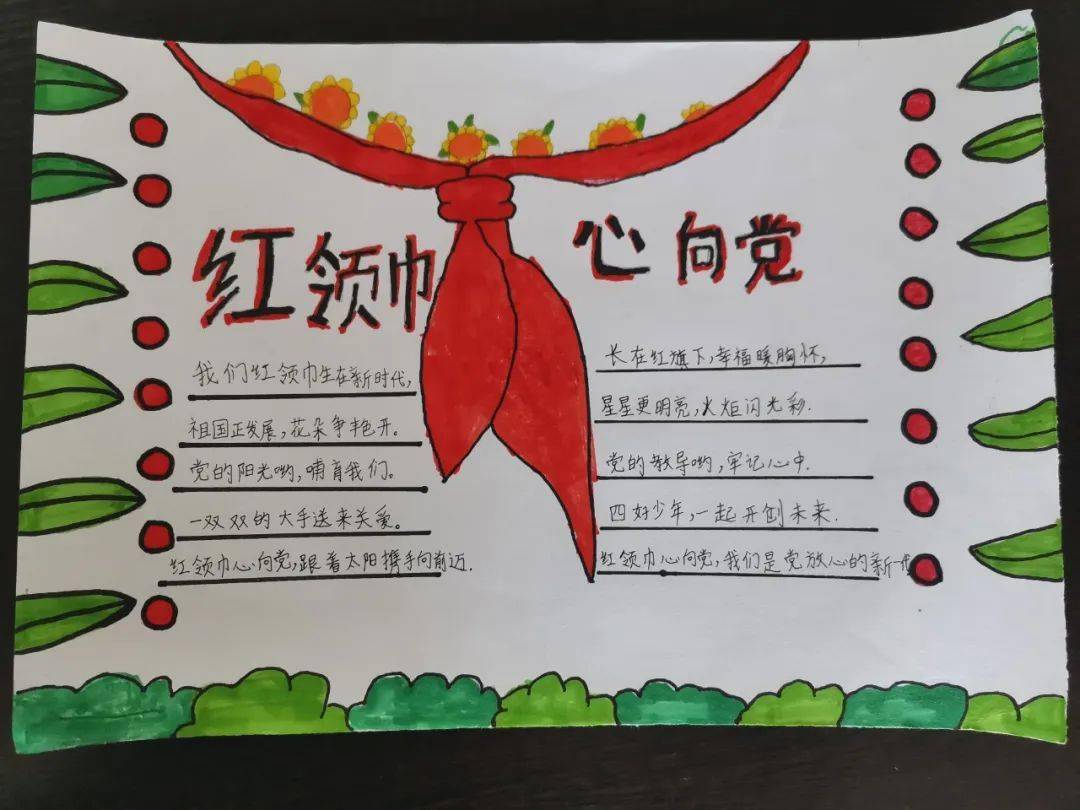 红领巾 心向党
我们红领巾生在新时代,
祖国正发展,花朵争丰色开。
党的阳光哟,哺育我们。
一双双的大手送来关爱。
红领巾心向党,跟着太阳携手向前迈.
长在红旗下,幸福暖胸怀,
星星更明亮,火炬闪光彩.
党的教导哟,牢记心中.
四好少年,一起开创未来.
红领巾心向党,我们是党放心的新一代